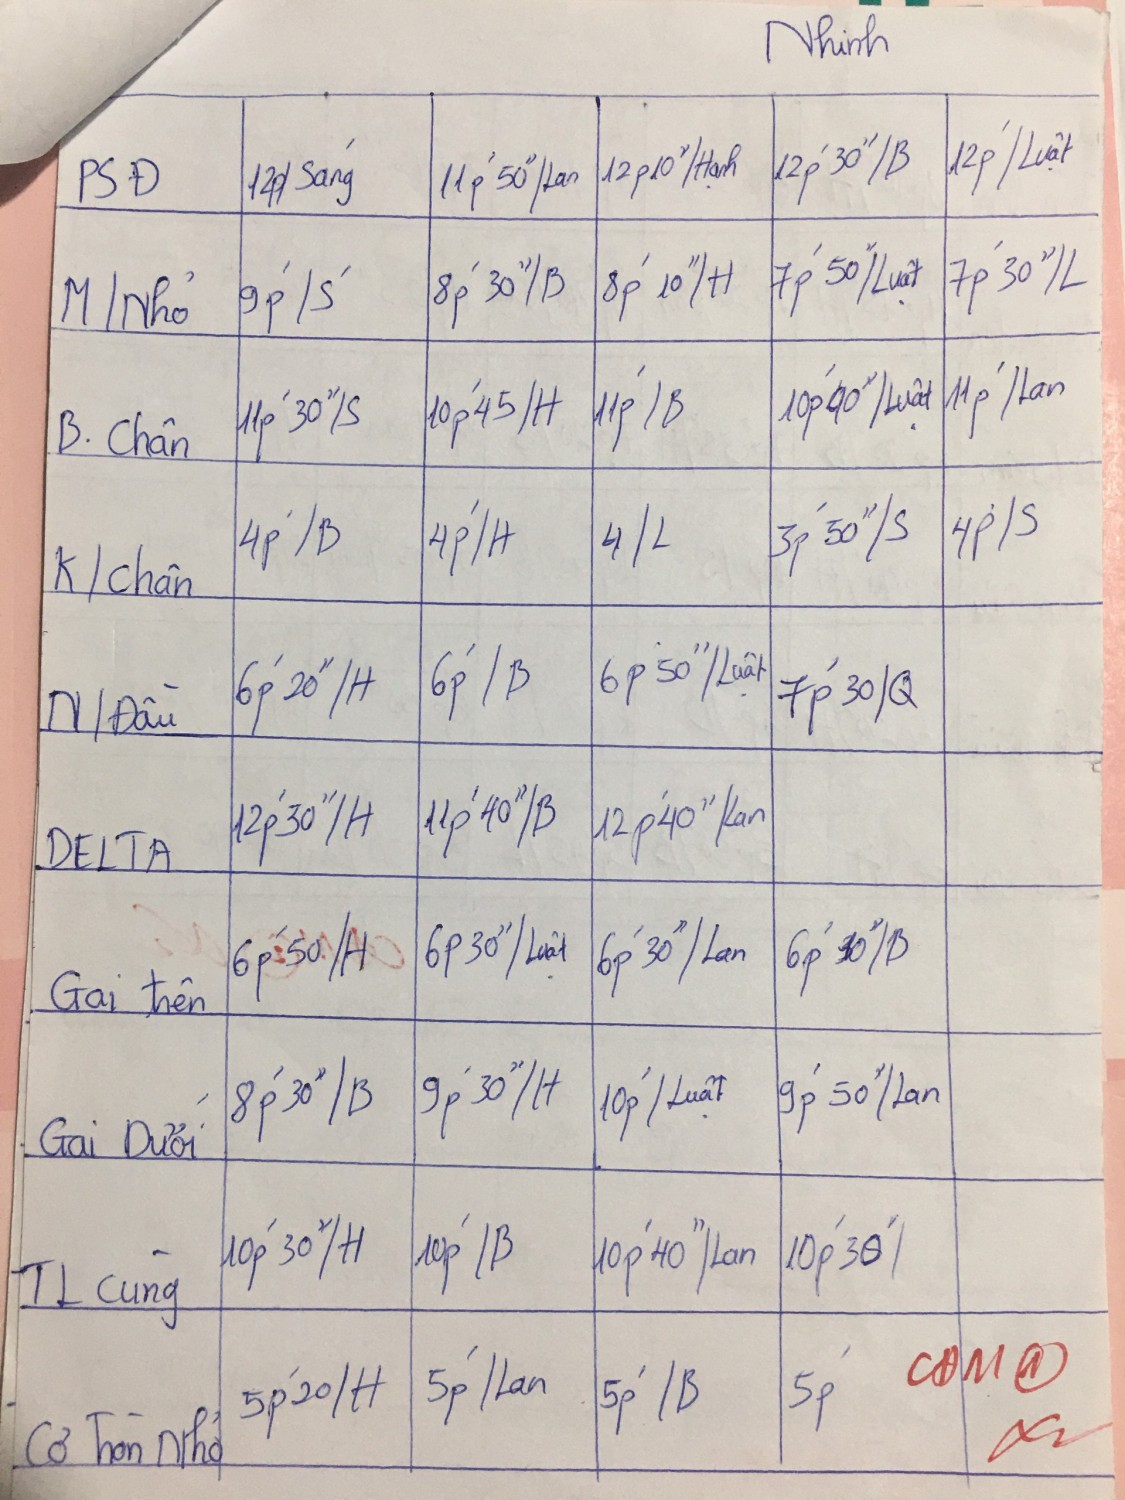 Nhinh
PSĐ 12p/Sáng 11p' 50"/Lan 12p10"/Hạnh 12p' 30"/B 12p'/Luật
M/Nhỏ 9p'/S' 8p' 30"/B 8p' 10"/H 7p' 50"/Luật 7p' 30"/L
B. Chân 11p' 30"/S 10p'45/H 11p'/B 10p'40"/Luật 11p'/Lan
K/chân 4p'/B 4p'/H 4/L 3p' 50"/S 4p'/S
N/Đầu 6p' 20"/H 6p'/B 6p 50"/Luật 7p' 30/Q
DELTA 12p'30"/H 11p'40"/B 12p'40"/Lan
Gai trên 6p'50/H 6p 30"/Luật 6p'30"/Lan 6p' 30"/B
Gai Dưới 8p'30"/B 9p' 30"/H 10p'/Luật 9p' 50"/Lan
TL cùng 10p' 30"/H 10p'/B 10p'40"/Lan 10p'30'/
Cơ Tròn Nhỏ 5p'20/H 5p'/Lan 5p'/B 5p'